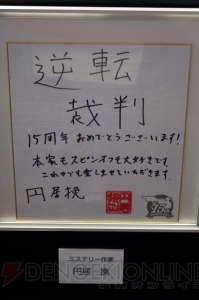 逆転
裁判
15周年 おめでとうございます!
本家もスピンオフも大好きです。
これからも楽しませていただきます。
円居挽
ミステリー作家
円居 挽
DENGEKIONLINE